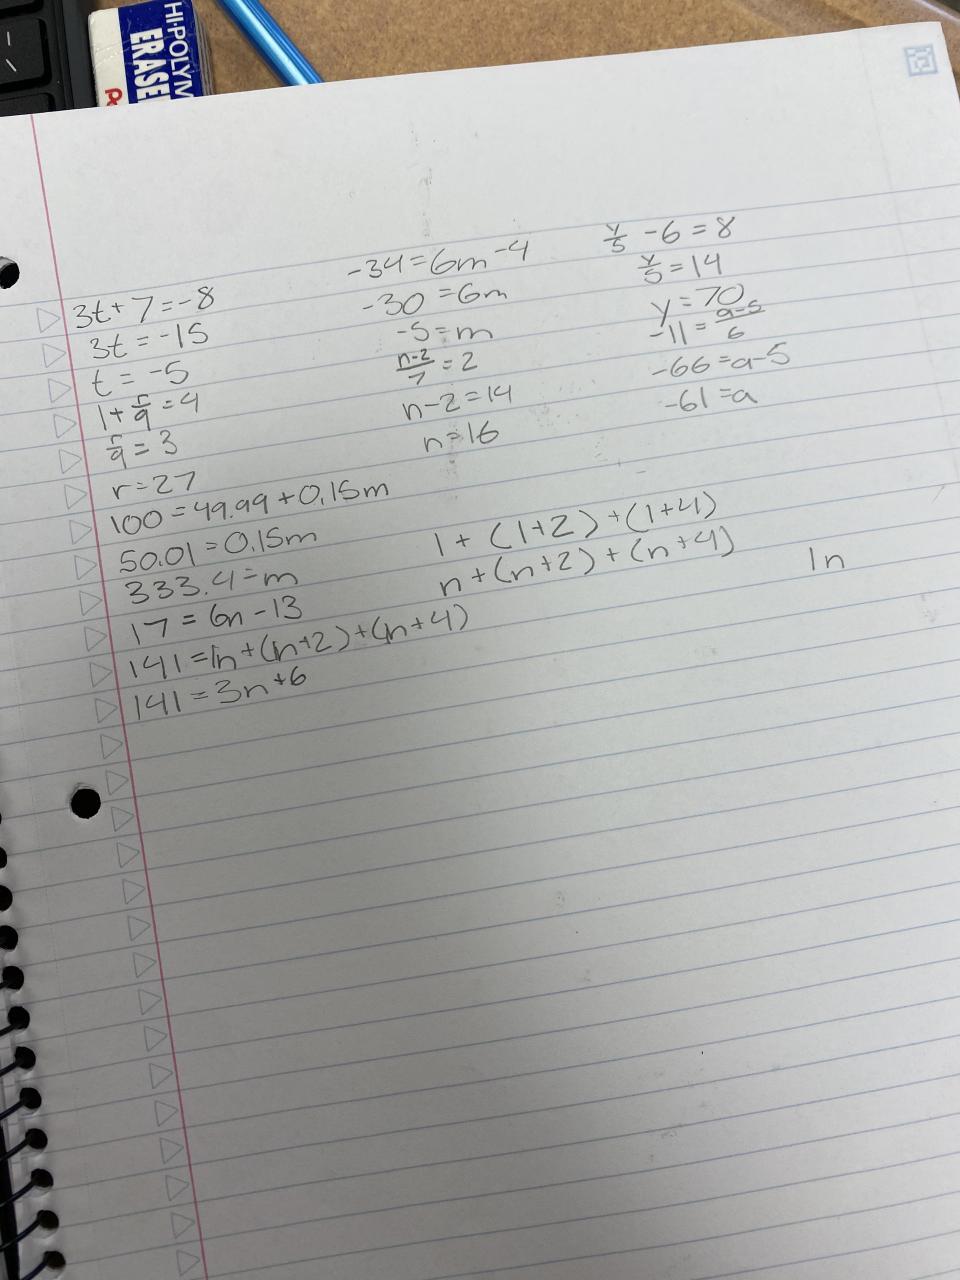 HI-POLYM
ERASE
3t + 7 = -8
3t = -15
t = -5
1 + r/9 = 4
r/9 = 3
r = 27
-34 = 6m - 4
-30 = 6m
-5 = m
n-2/7 = 2
n - 2 = 14
n = 16
y/5 - 6 = 8
y/5 = 14
y = 70
-11 = a-5/6
-66 = a - 5
-61 = a
100 = 49.99 + 0.15m
50.01 = 0.15m
333.4 = m
17 = 6n - 13
141 = 1n + (n+2) + (n+4)
141 = 3n + 6
1 + (1+2) + (1+4)
n + (n+2) + (n+4)
1n